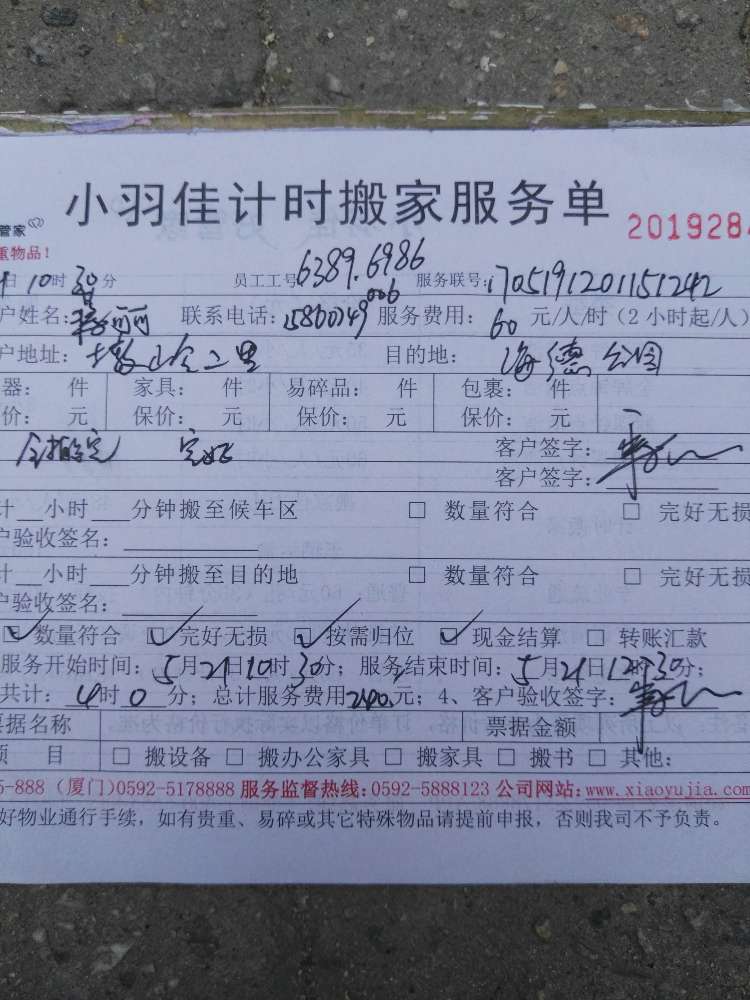 小羽佳计时搬家服务单
管家 2019284
重物品！
日 10时30分 员工工号 6389.6986 服务联号: 1705191201151242
户姓名: 丽丽 联系电话: 15860749006 服务费用: 60 元/人/时（2小时起/人）
户地址: 二里 目的地: 海德公园
器: 件 家具: 件 易碎品: 件 包裹: 件
价: 元 保价: 元 保价: 元 保价: 元
完好 客户签字:
客户签字:
计__小时___分钟搬至候车区 □ 数量符合 □ 完好无损
户验收签名:
计__小时___分钟搬至目的地 □ 数量符合 □ 完好无损
户验收签名:
☑ 数量符合 ☑ 完好无损 ☑ 按需归位 ☑ 现金结算 □ 转账汇款
服务开始时间: 5月21日10时30分; 服务结束时间: 5月21日12时30分;
共计: 4时0分; 总计服务费用240元; 4、客户验收签字:
票据名称 票据金额
项 目 □ 搬设备 □ 搬办公家具 □ 搬家具 □ 搬书 □ 其他:
5-888（厦门）0592-5178888 服务监督热线:0592-5888123 公司网站:www.xiaoyujia.com
好物业通行手续，如有贵重、易碎或其它特殊物品请提前申报，否则我司不予负责。